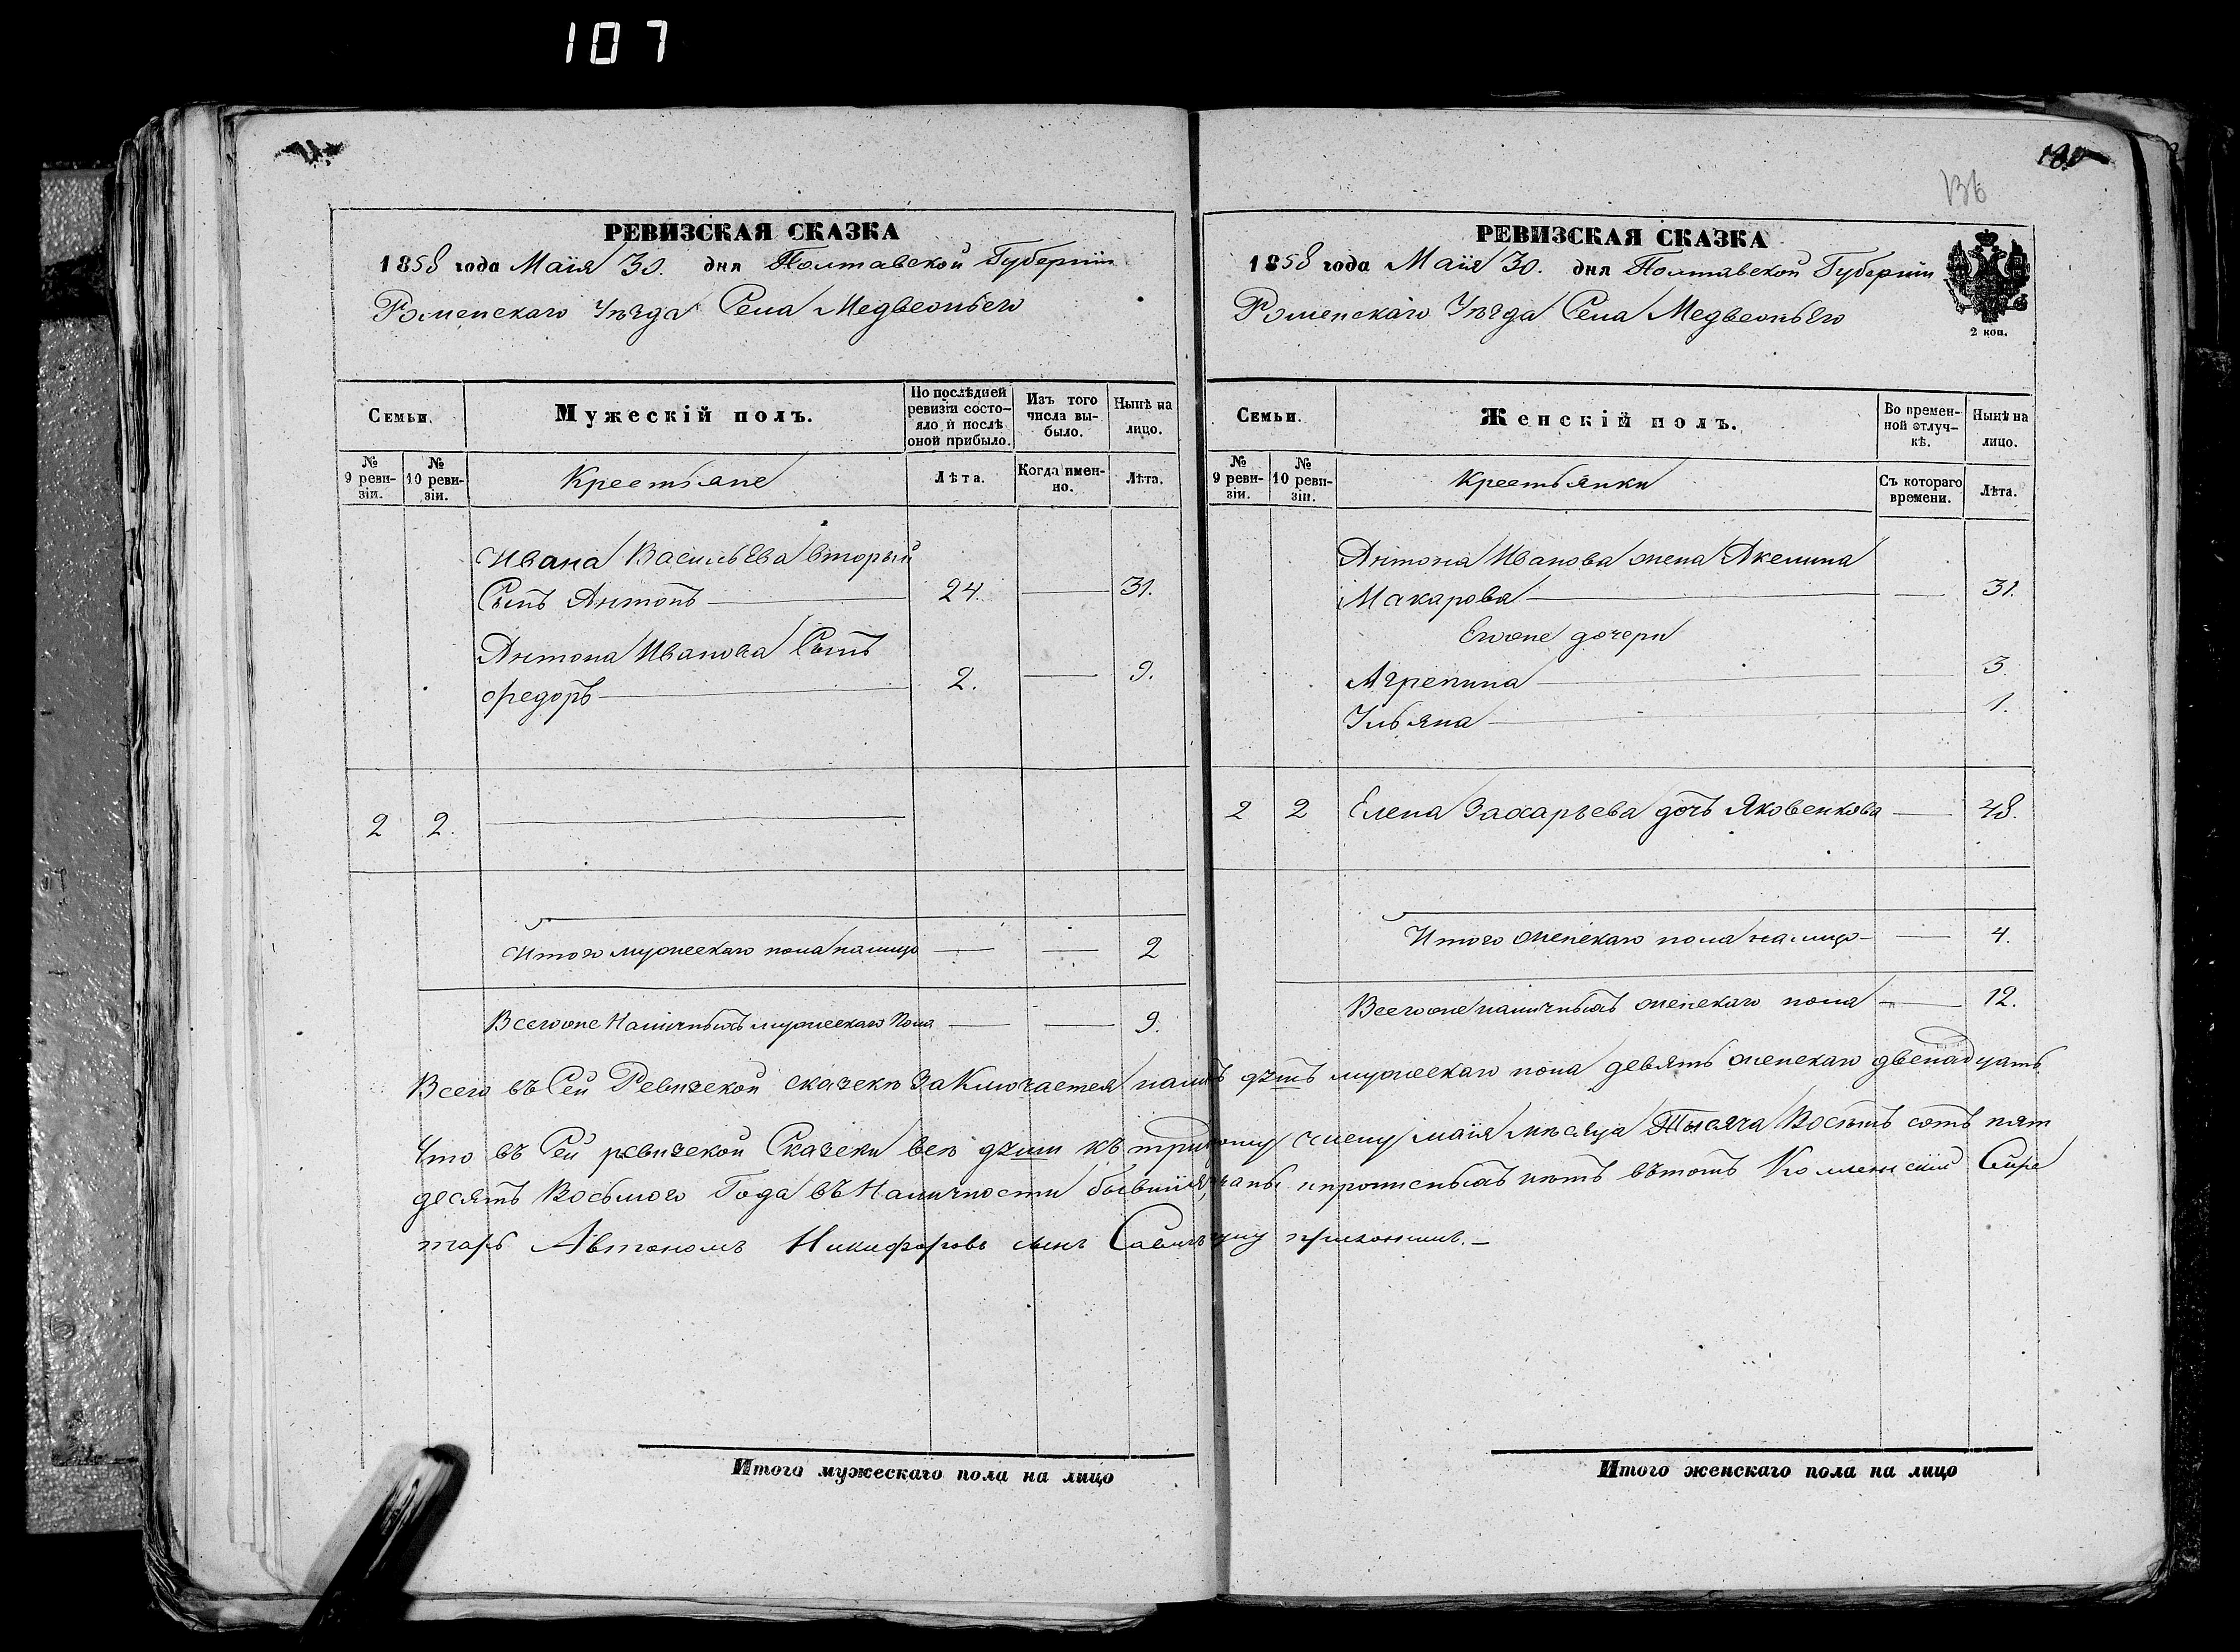 107
136
РЕВИЗСКАЯ СКАЗКА
1858 года Маія 30. дня Полтавской Губерніи
Роменскаго Уѣзда Села Медвежьего
Семьи.
Мужескій полъ.
По послѣдней ревизіи состояло и послѣ оной прибыло.
Изъ того числа выбыло.
Нынѣ на лицо.
№ 9 ревизіи.
№ 10 ревизіи.
Крестьяне
Лѣта.
Когда именно.
Лѣта.
Ивана Васильева вторый
Сынъ Антонъ 24. 31.
Антона Иванова Сынъ
Федоръ 2. 9.
2 2.
Итого мужескаго пола на лицо 2
Всегоже Наличныхъ мужескаго Пола 9.
Итого мужескаго пола на лицо
РЕВИЗСКАЯ СКАЗКА
1858 года Маія 30. дня Полтавской Губерніи
Роменскаго Уѣзда Села Медвежьего
2 коп.
Семьи.
Женскій полъ.
Во временной отлучкѣ.
Нынѣ на лицо.
№ 9 ревизіи.
№ 10 ревизіи.
Крестьянки
Съ котораго времени.
Лѣта.
Антона Иванова жена Акелина
Макарова 31.
Егоже дочери
Агрепина 3.
Ульяна 1.
2 2 Елена Захарьева дочь Яковенкова 48.
Итого женскаго пола на лицо 4.
Всегоже наличныхъ женскаго пола 12.
Всего въ Сей Ревизской сказкѣ Заключается душъ мужескаго пола девять женскаго двенадцать
Что въ Сей ревизской Сказки всѣ души къ маія мѣсяца Тысяча Восемь сотъ пят
десять Восьмого Года въ Наличности бывшія, и прописныхъ нѣтъ вътомъ
Автономъ Никифоровъ сынъ
Итого женскаго пола на лицо